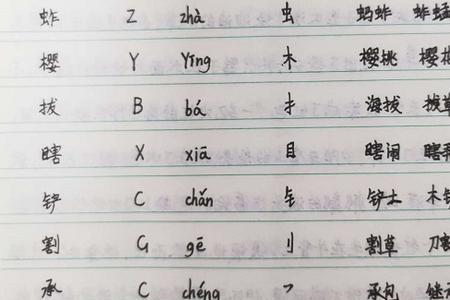 蚱 Z zhà 虫 蚂蚱 蚱蜢
樱 Y Yīng 木 樱桃 樱
拔 B bá 扌 海拔 拔草
瞎 X xiā 目 瞎闹 瞎
铲 C chǎn 钅 铲土 木铲
割 G gē 刂 割草 刀割
承 C chéng 乛 承包 继承